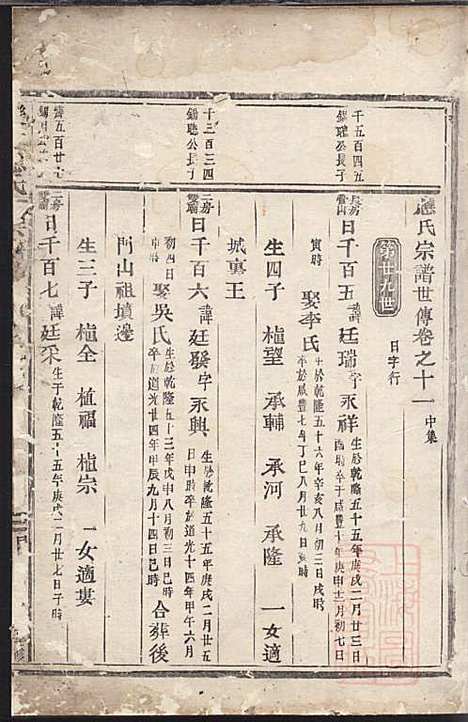 應氏宗譜世傳卷之十一 中集
日字行
第廿九世
千五百四五
錫聰公長子
長房
日千百五 諱廷瑞字永祥 生於乾隆五十五年庚戌二月廿三日
酉時卒于咸豐十年庚申十二月初七日
寅時 娶李氏 生於乾隆五十六年辛亥八月初三日戌時
卒於咸豐七年丁巳八月廿九日寅時
生四子 植望 承輔 承河 承隆 一女適
城裏王
十三百三四
錫聰公長子
二房
日千百六 諱廷發字永興 生於乾隆五十五年庚戌二月廿五
日申時卒於道光十四年甲午六月
初四日 娶吳氏 生於乾隆五十三年戊申八月初三日巳時
卒於道光廿四年甲辰九月十四日巳時 合葬後
門山祖墳邊
生三子 植全 植福 植宗 一女適婁
五百廿七
二房
日千百七 諱廷采 生于乾隆五十五年庚戌二月廿七日子時